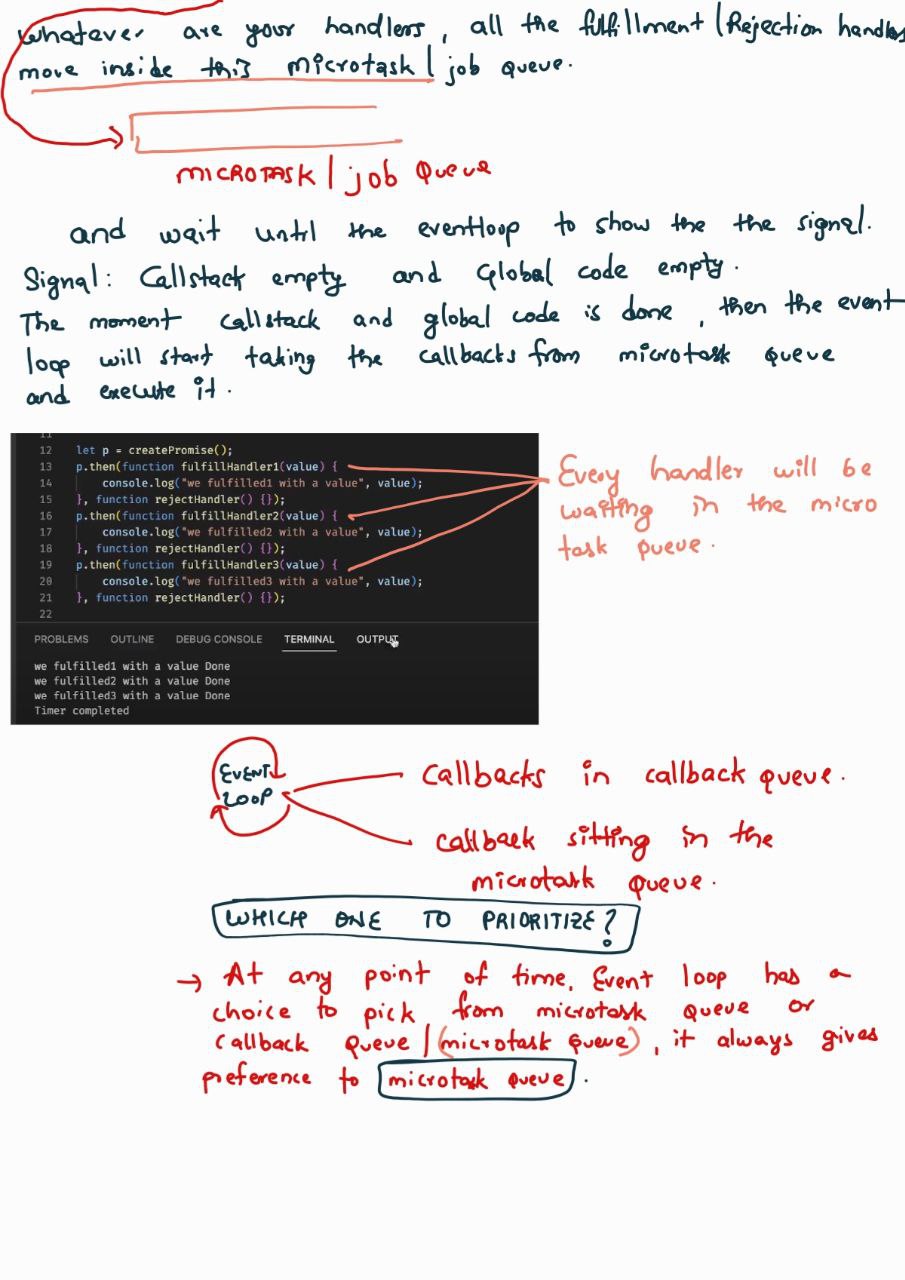 whatever are your handlers, all the fulfillment | Rejection handlers
move inside this microtask | job queue.
MICROTASK | job Queue
and wait until the eventloop to show the the signal.
Signal: Callstack empty and Global code empty.
The moment callstack and global code is done, then the event
loop will start taking the callbacks from microtask queue
and execute it.
11
12 let p = createPromise();
13 p.then(function fulfillHandler1(value) {
14 console.log("we fulfilled1 with a value", value);
15 }, function rejectHandler() {});
16 p.then(function fulfillHandler2(value) {
17 console.log("we fulfilled2 with a value", value);
18 }, function rejectHandler() {});
19 p.then(function fulfillHandler3(value) {
20 console.log("we fulfilled3 with a value", value);
21 }, function rejectHandler() {});
22
Every handler will be
waiting in the micro
task queue.
PROBLEMS OUTLINE DEBUG CONSOLE TERMINAL OUTPUT
we fulfilled1 with a value Done
we fulfilled2 with a value Done
we fulfilled3 with a value Done
Timer completed
EVENT
LOOP
Callbacks in callback queue.
callback sitting in the
microtask queue.
WHICH ONE TO PRIORITIZE?
→ At any point of time, Event loop has a
choice to pick from microtask queue or
Callback Queue | (microtask queue), it always gives
preference to microtask queue.